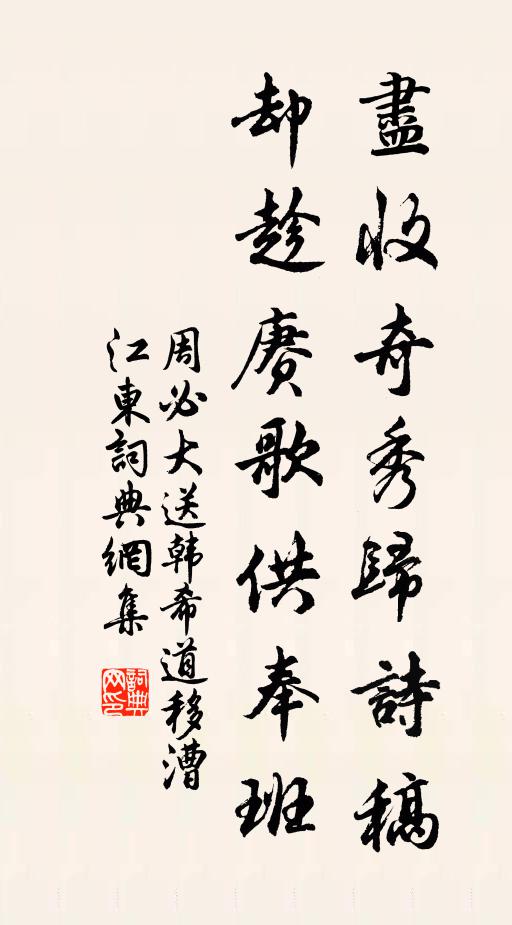 盡收奇秀歸詩稿
却趁賡歌供奉班
周必大送韩希道移漕
江東詞典網集
詞典
网印